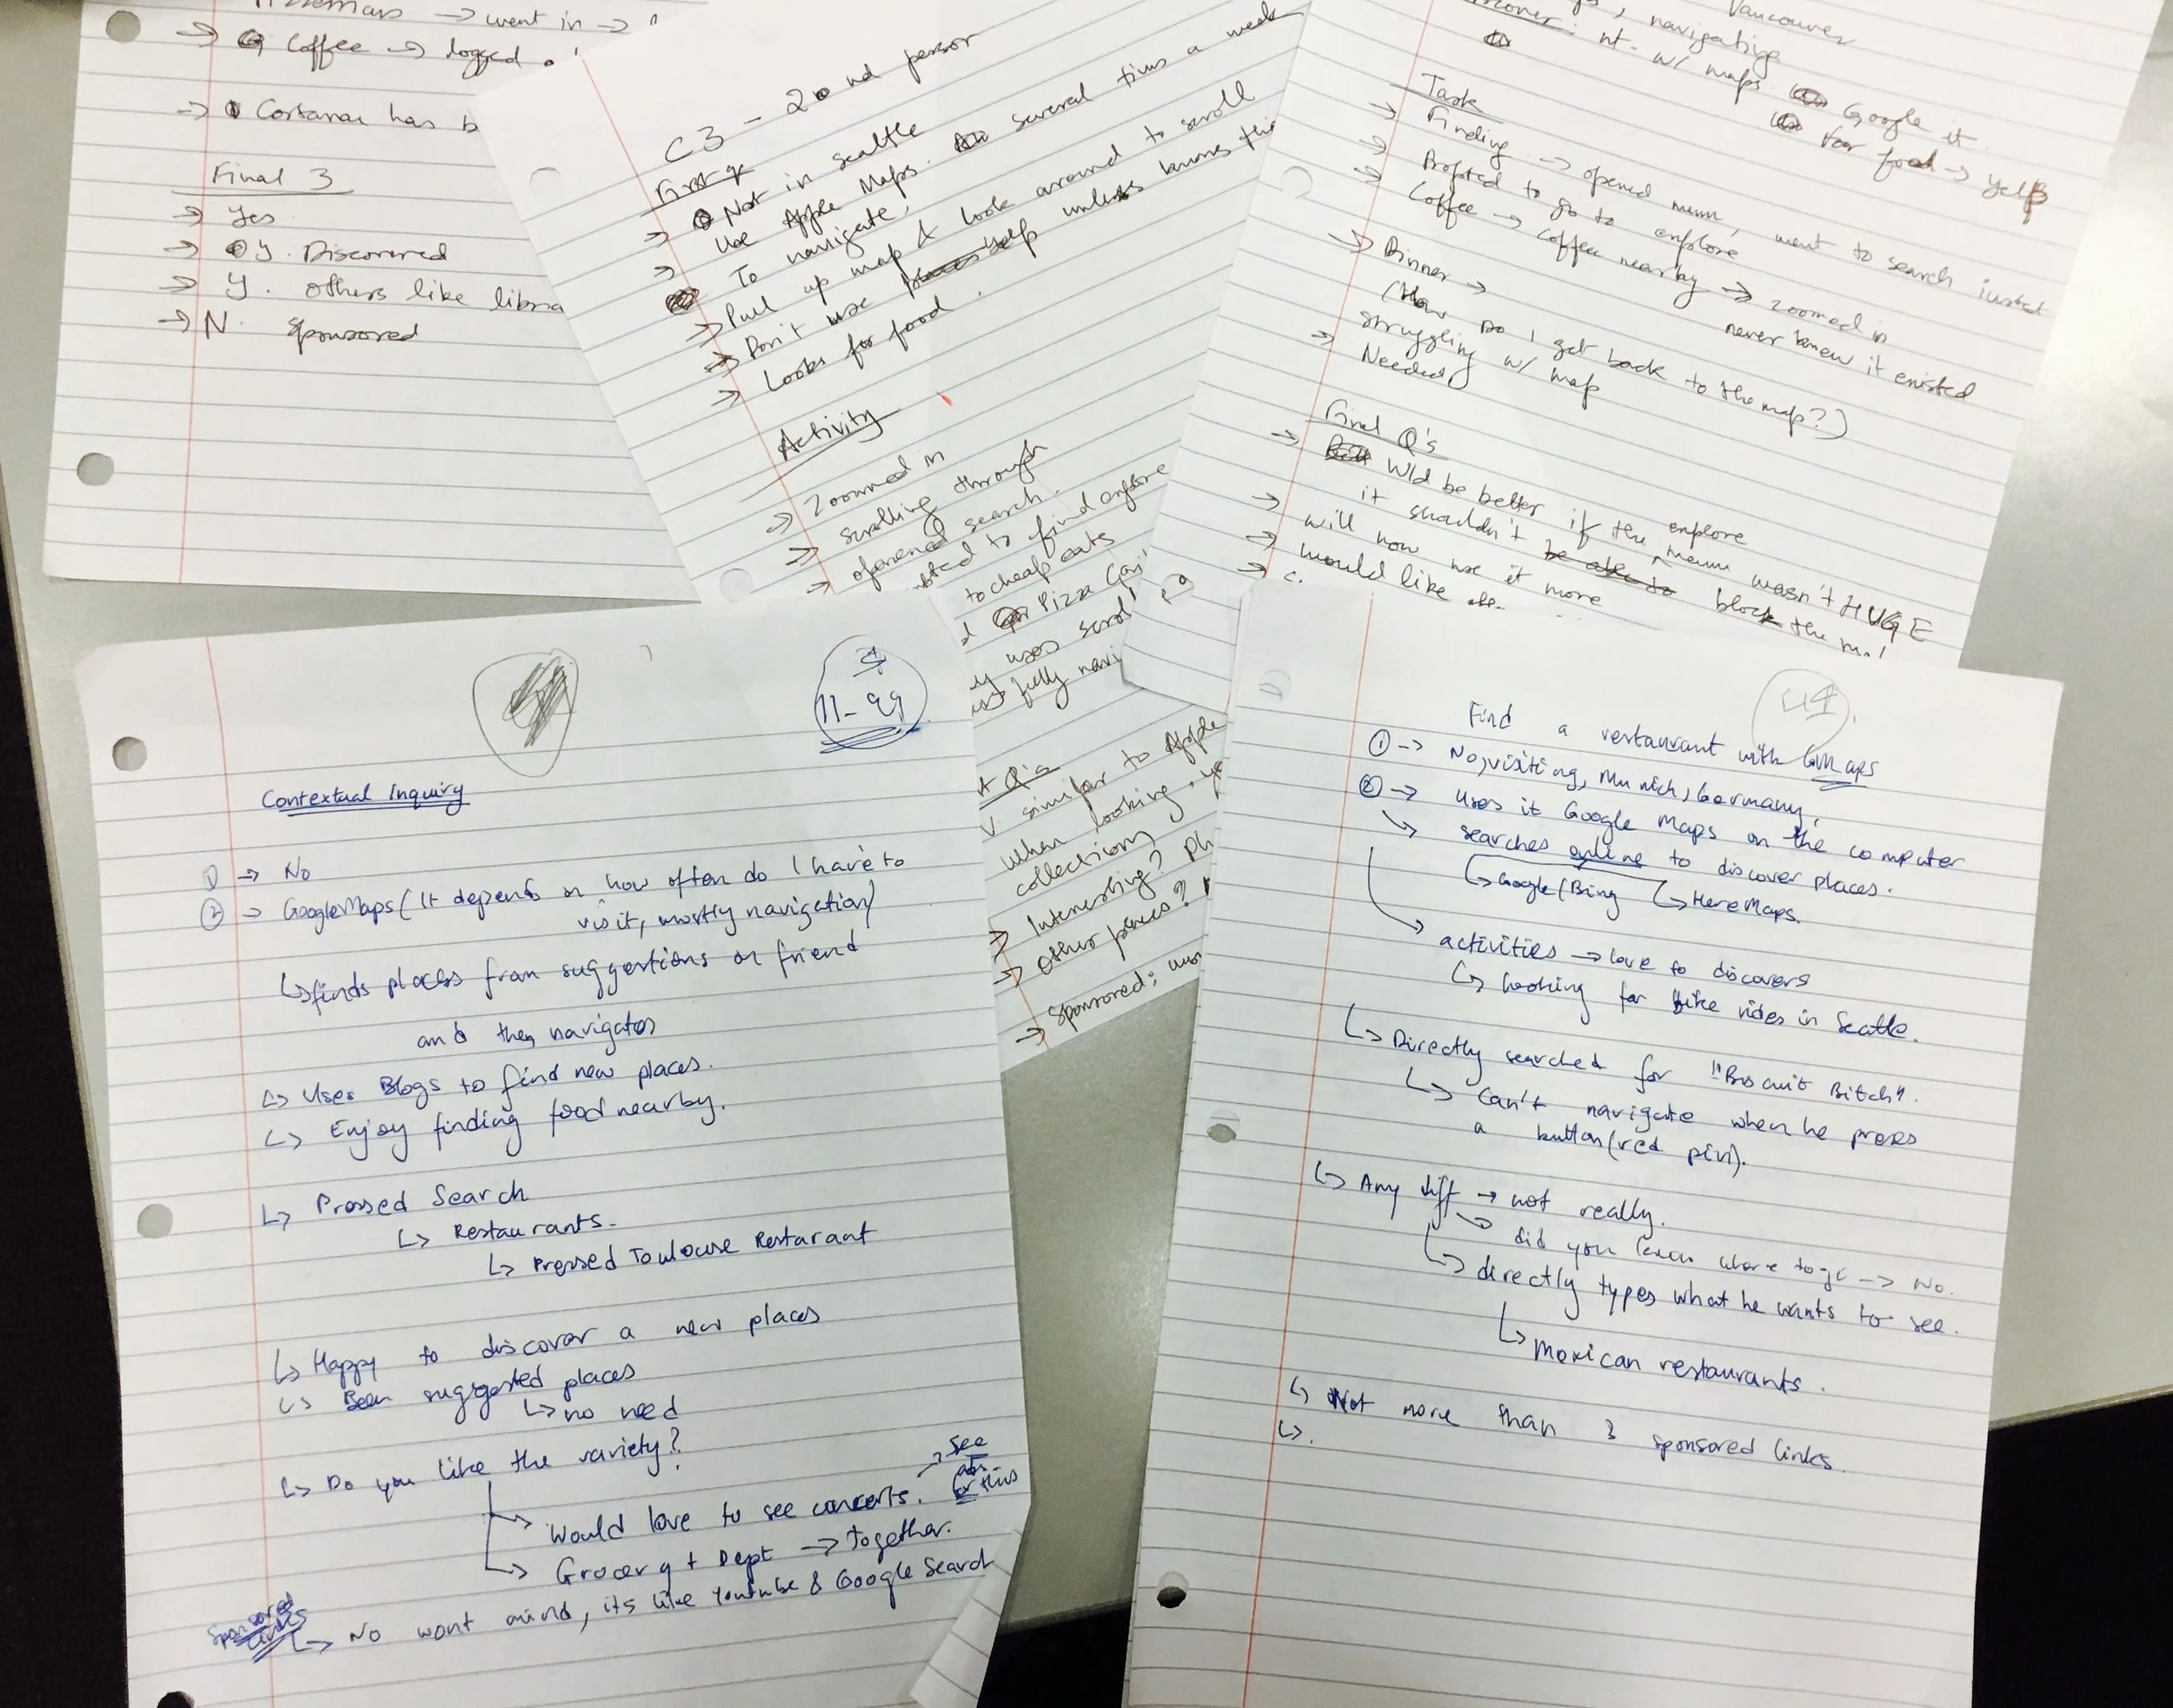 → went in →
→ Coffee → logged
→ Cortana has b
Final 3
→ Yes
→ Y. Discovered
→ Y. others like libra
→ N. Sponsored
C3 - 2 nd person
First Q
→ Not in seattle
Use Apple Maps. several times a week
→ To navigate,
Pull up map & look around to scroll
→ Don't use Yelp unless knows
→ Looks for food.
Activity
→ Zoomed in
→ scrolling through
→ opened search.
to find explore
to cheap eats
Pizza
uses scrol
fully navi
Q's
similar to Apple
when looking,
collection
→ Interesting?
→ other places?
→ Sponsored;
Vancouver
navigating
w/ maps Google it
For food → yelp
Task
→ Finding → opened menu, went to search
→ Prompted to go to explore
→ Coffee → coffee nearby → zoomed in
never knew it existed
→ Dinner →
(How Do I get back to the map?)
struggling w/ map
→ Needed
Final Q's
→ Wld be better if the explore menu wasn't HUGE
it shouldn't be able to block the
→ will now use it more
→ would like
11-99
Contextual Inquiry
① → No
② → GoogleMaps (It depends on how often do I have to
visit, mostly navigation)
↳ finds places from suggestions or friend
and then navigates
↳ Uses Blogs to find new places.
↳ Enjoy finding food nearby.
↳ Pressed Search
↳ Restaurants.
↳ Pressed Toulouse Restarant
↳ Happy to discover a new places
↳ Been suggested places
↳ no need
↳ Do you like the variety?
→ Would love to see concerts. → see ads for this
↳ Grocery + Dept → Together.
Sponsored Links
↳ No wont mind, its like Youtube & Google Search
Find a restaurant with GMaps
① → No, visiting, Munich, Germany,
② → Uses it Google Maps on the computer
↳ searches online to discover places.
↳ Google/Bing ↳ HereMaps.
activities → love to discovers
↳ looking for bike rides in Seattle.
↳ Directly searched for "Biscuit Bitch".
↳ Can't navigate when he press
a button (red pin).
↳ Any diff → not really.
→ did you learn where to go → No.
↳ directly types what he wants to see.
↳ Mexican restaurants.
↳ Not more than 3 sponsored links.
↳.